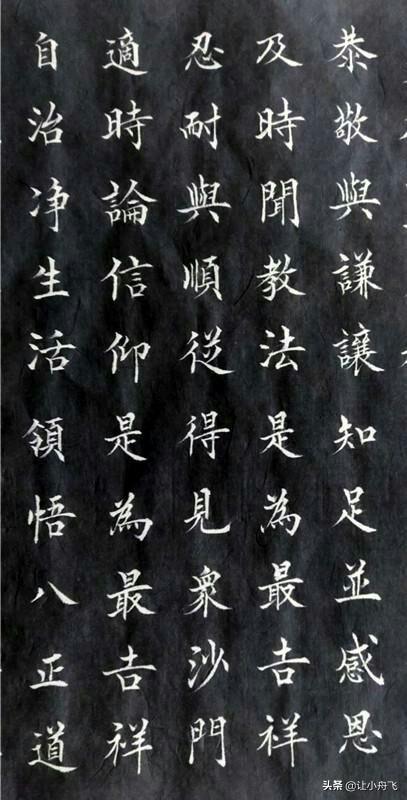 恭敬與謙讓知足並感恩
及時聞教法是為最吉祥
忍耐與順從得見衆沙門
適時論信仰是為最吉祥
自治净生活領悟八正道
头条 @让小舟飞